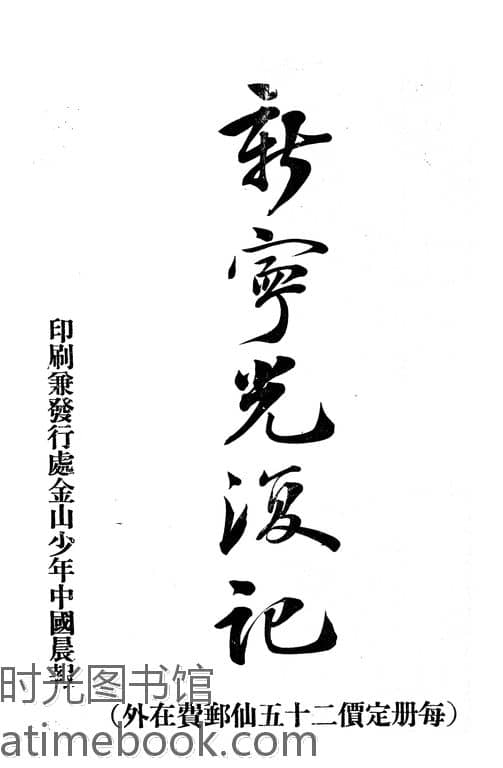 新寧光復記
印刷兼發行處金山少年中國晨報
(每册定價二十五仙郵費在外)
时光图书馆
atimebook.com